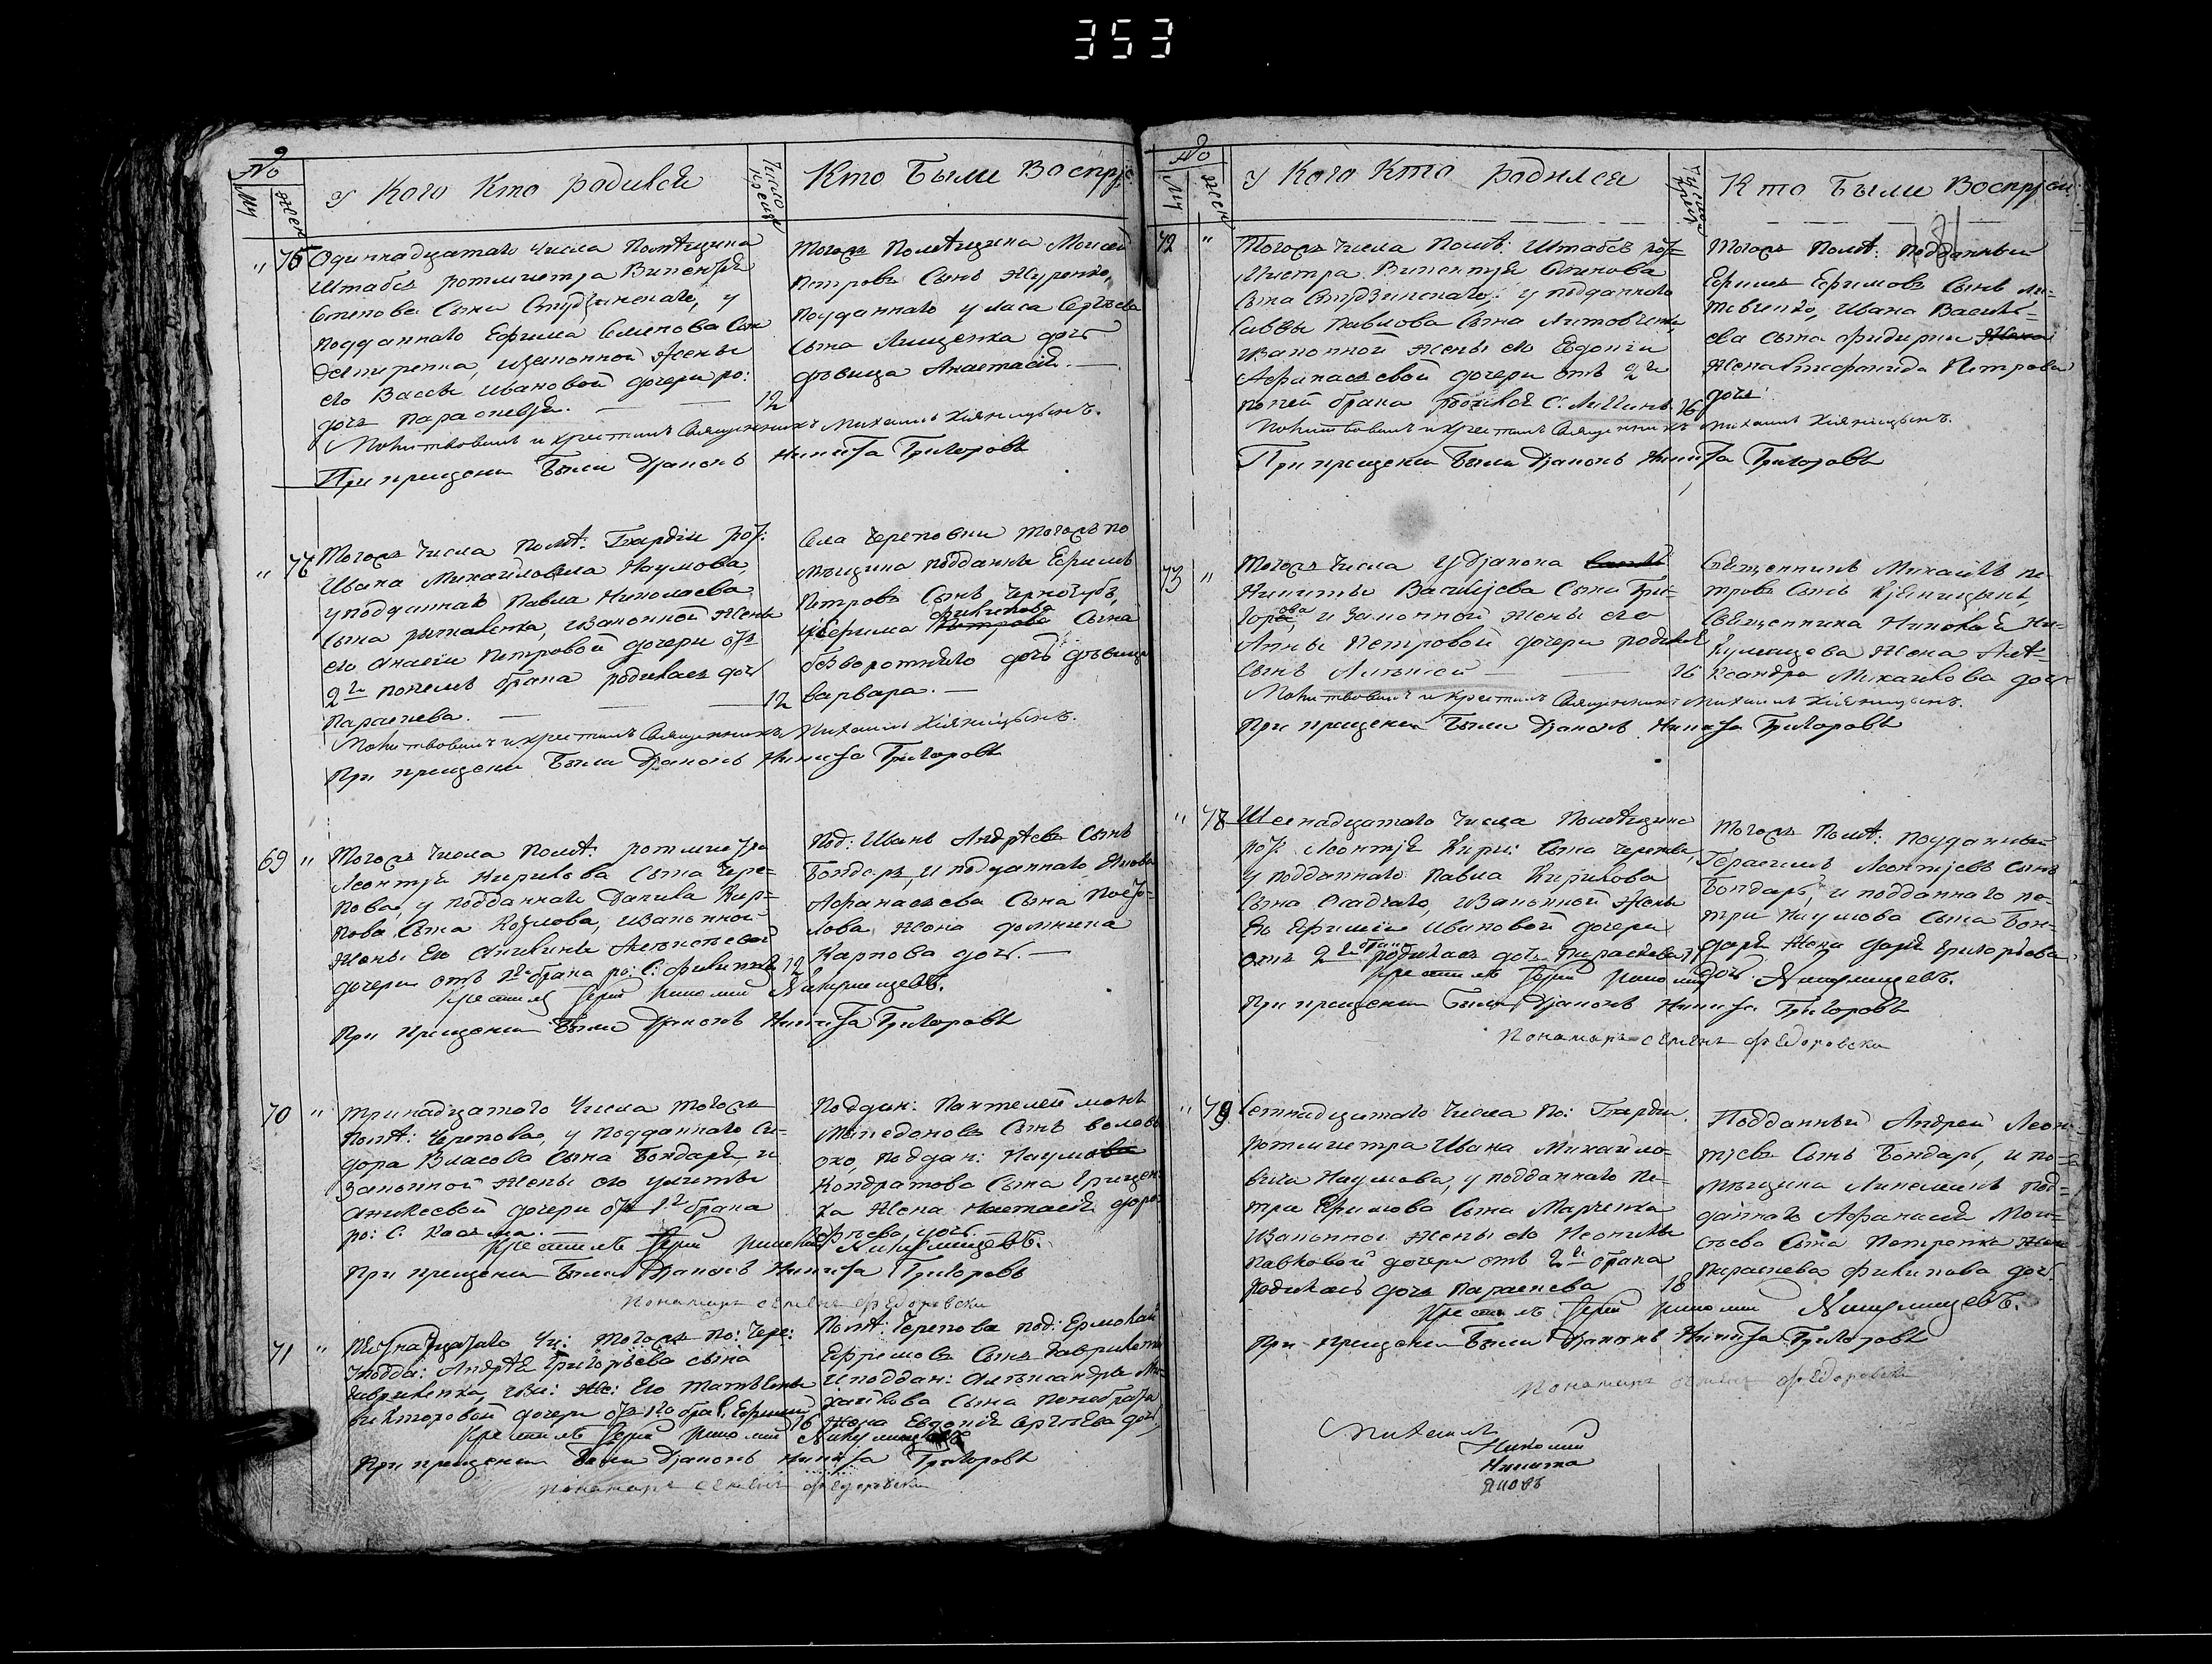 353
№
Му
Жен
У Кого Кто родился
Число крещ
Кто Были Воспр:
" 76 Одиннадцатаго Числа Помѣщика
Штабсъ ротмистра Викентія
Степова Сына Студзинскаго, у
подданнаго Ефима Семенова Сына
законной Жены
его Вассы Ивановой дочери ро:
дочь Параскевія. 12
Тогожъ Помѣщика Моисей
Петровъ Сынъ Журенко,
подданаго Уласа Сергѣева
Сына Лищенка дочь
дѣвица Анастасія.
Молитвовалъ и крестилъ Священникъ Михаилъ Хіяницынъ.
При крещеніи Были Діаконъ Никита Григоровъ
" 77 Тогожъ Числа Помѣ: Гвардіи рот:
Ивана Михайлова Наумова,
у подданнаго Павла Николаева
Сына изаконной Жены
его Петровой дочери отъ
2го брака родилась дочь
Параскева. 12
Села Череповки тогожъ по
мѣщика подданны Ефимъ
Петровъ Сынъ Черногубъ,
Ефима Филипова Сына
безворотнѣго дочь дѣвица
Варвара.
Молитвовалъ и крестилъ Священникъ Михаилъ Хіяницынъ.
При крещеніи Были Діаконъ Никита Григоровъ
69 " Тогожъ Числа Помѣ: ротмистра
Леонтія Кирилова Сына Чере-
пова, у подданнаго Данила Кар-
пова Сына Козлова, изаконной
Жены Его Акилины Алексѣевой
дочери отъ брака ро: С: Филиппъ 12
Под: Иванъ Андрѣевъ Сынъ
Бондарь, и подданнаго Якова
Афанасьева Сына
Жена домникия
Карпова дочь.
Крестилъ Іерей Николай Никулищевъ.
При крещеніи Были Діаконъ Никита Григоровъ
70 " Тринадцатого Числа тогожъ
помѣ: Черепова, у подданнаго Си-
дора Власова Сына Бондаря, и
Законной Жены его Улиты
Аникеевой дочери отъ 1го брака
ро: С. Касьма.
Поддан: Пантелеймонъ
Македоновъ Сынъ
поддан: Наума
Кондратова Сына Грицен-
ка Жена Настасія доро-
фѣева дочь.
Крестилъ Іерей Николай Никулищевъ.
При крещеніи Были Діаконъ Никита Григоровъ
Пономарь Семенъ Федоровски
71 " Чи: тогожъ по: Чере:
Уподда: Андрѣя Григорьева сына
Гавриленка, изак: Же: Его Татьяны
Викторовой дочери отъ 1го бра С. Ефимъ 16
Помѣ: Черепова под: Ермолай
Ефимовъ Сынъ Гавриленко
И поддан: Александра Ми-
хайлова Сына
Жена Евдокія Сергѣева дочь,
Крестилъ Іерей Николай Никулищевъ
При крещеніи Были Діаконъ Никита Григоровъ
Пономарь Семенъ Федоровски
№
Му
Жен
У Кого Кто родился
Число крещ
Кто Были Воспріем:
72 " Тогожъ Числа Помѣ: Штабсъ рот-
мистра Викентія Степова
Сына Студзинскаго, у подданнаго
Саввы Павлова Сына Литовченка
изаконной жены его Евдокіи
Афанасьевой дочери отъ 2го
брака родился С. 16
Тогожъ Помѣ: Подданный
Ефимъ Ефимовъ Сынъ Ли-
товченко, Ивана Василь-
ева Сына
Жена Стефанида Петрова
дочь
Молитвовалъ и крестилъ Священникъ Михаилъ Хіяницынъ.
При крещеніи Были Діаконъ Никита Григоровъ
73 " Тогожъ Числа У Діакона
Никиты Васильева Сына Гри-
горова, и Законной жены его
Анны Петровой дочери родился
Сынъ Алексей 16
Священникъ Михаилъ Пе-
тровъ Сынъ Хіяницынъ,
Священника Николая Ни-
кулищева Жена Але-
ксандра Михайлова дочь
Молитвовалъ и крестилъ Священникъ Михаилъ Хіяницынъ.
При крещеніи Были Діаконъ Никита Григоровъ
" 78 Шеснадцатаго Числа Помѣщика
рот: Леонтія Кири: Сына Черепова,
у подданнаго Павла Кирилова
Сына Осадчаго, изаконной Жены
Его Ефиміи Ивановой дочери
отъ 2го брака родилась дочь Параскева
Тогожъ Помѣ: подданный
Герасимъ Леонтіевъ Сынъ
Бондарь, и подданнаго пе-
тра Наумова Сына Бон-
даря Жена дарія Григорьева
дочь.
Крестилъ Іерей Николай Никулищевъ.
При крещеніи Были Діаконъ Никита Григоровъ
Пономарь Семенъ Федоровски
" 79 Семнадцатаго Числа По: Гвардіи
ротмистра Ивана Михайло-
вича Наумова, у подданнаго Пе-
тра Ефимова Сына Марченка
изаконной Жены его Неонилы
Павловой дочери отъ 2го брака
Родилась дочь Параскева 18
Подданный Андрей Леон-
тіевъ Сынъ Бондарь, и по-
мѣщика под-
даннаго Афанасія Мои-
сѣева Сына Петренка Жена
Параскева Филипова дочь.
Крестилъ Іерей Николай Никулищевъ.
При крещеніи Были Діаконъ Никита Григоровъ
Пономарь Семенъ Федоровски
Михаилъ
Николай
Никита